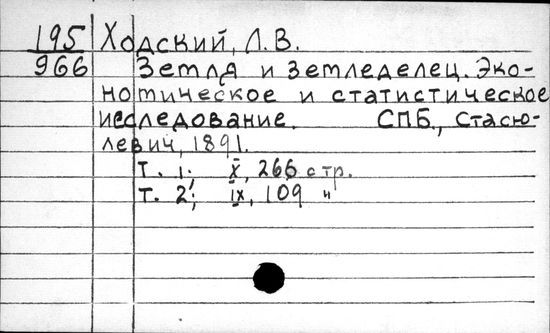 195 Ходский, Л. В.
966 Земля и земледелец. Эко-
номическое и статистическое
исследование. СПБ., Стасю-
левич, 1891.
Т. 1; X, 266 стр.
Т. 2; IX, 109 "